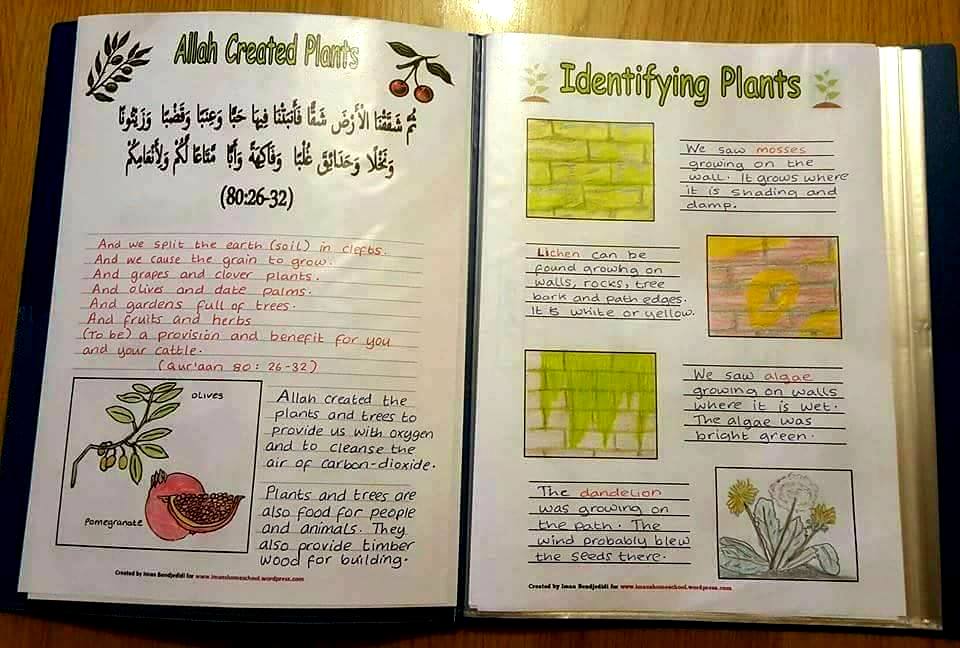 Allah Created Plants
ثُمَّ شَقَقْنَا الْأَرْضَ شَقًّا فَأَنبَتْنَا فِيهَا حَبًّا وَعِنَبًا وَقَضْبًا وَزَيْتُونًا
وَنَخْلًا وَحَدَائِقَ غُلْبًا وَفَاكِهَةً وَأَبًّا مَّتَاعًا لَّكُمْ وَلِأَنْعَامِكُمْ
(80:26-32)
And we split the earth (soil) in clefts.
And we cause the grain to grow.
And grapes and clover plants.
And olives and date palms.
And gardens full of trees.
And fruits and herbs
(To be) a provision and benefit for you
and your cattle.
(Qur'aan 80: 26-32)
olives
Pomegranate
Allah created the
plants and trees to
provide us with oxygen
and to cleanse the
air of carbon-dioxide.
Plants and trees are
also food for people
and animals. They
also provide timber
wood for building.
Created by Iman Bendjedidi for www.imanshomeschool.wordpress.com
Identifying Plants
We saw mosses
growing on the
wall. It grows where
it is shading and
damp.
Lichen can be
found growing on
walls, rocks, tree
bark and path edges.
It is white or yellow.
We saw algae
growing on walls
where it is wet.
The algae was
bright green.
The dandelion
was growing on
the path. The
wind probably blew
the seeds there.
Created by Iman Bendjedidi for www.imanshomeschool.wordpress.com